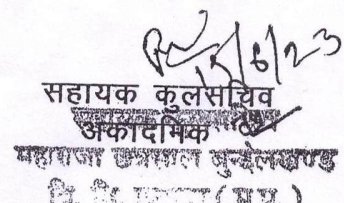 6/23
सहायक कुलसचिव
अकादमिक
महाराजा छत्रसाल बुन्देलखण्ड
वि. वि. (म.प्र.)